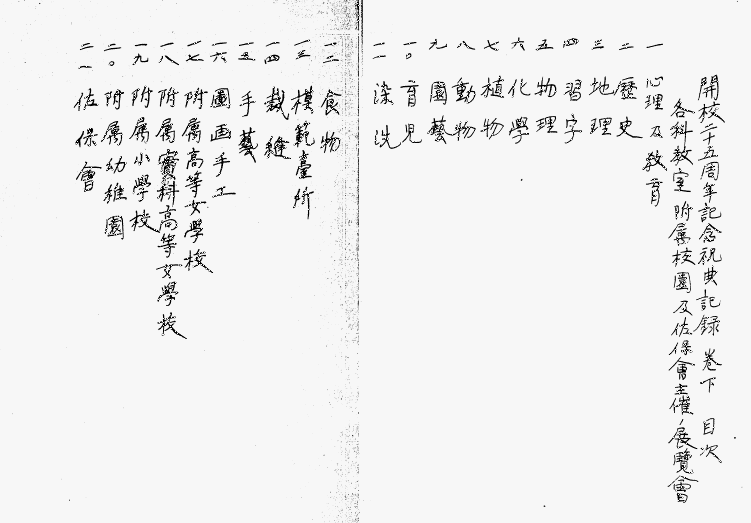 開校二十五周年記念祝典記録 巻下 目次
各科教室 附属校園及佐保會主催ノ展覧會
一 心理及教育
二 歴史
三 地理
四 習字
五 物理
六 化学
七 植物
八 動物
九 園藝
一〇 育児
一一 染洗
一二 食物
一三 模範臺所
一四 裁縫
一五 手藝
一六 圖画手工
一七 附属高等女学校
一八 附属實科高等女學校
一九 附属小学校
二〇 附属幼稚園
二一 佐保會